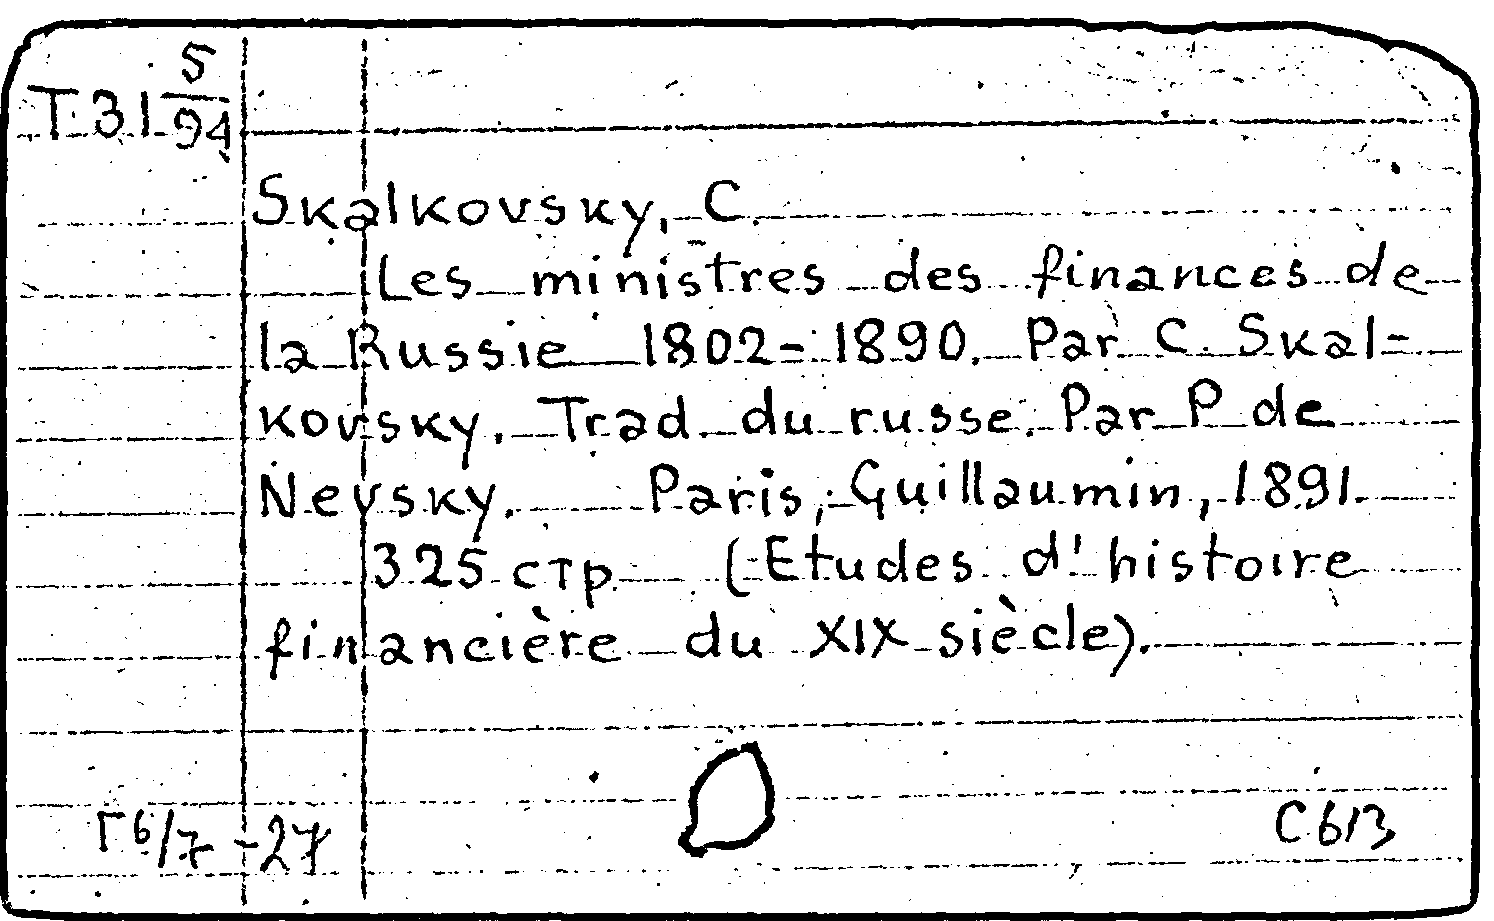 Т 31 5/94
Skalkovsky, C.
Les ministres des finances de
la Russie 1802-1890. Par C. Skal-
kovsky. Trad. du russe. Par P. de
Nevsky. Paris, Guillaumin, 1891.
325 стр. (Etudes d'histoire
financière du XIX siècle).
Г 6/7 -27
С 6/3